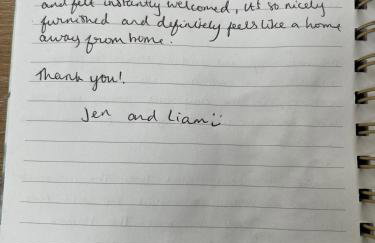 and felt instantly welcomed, it's so nicely
furnished and definitely feels like a home
away from home.
Thank you!
Jen and Liam :)